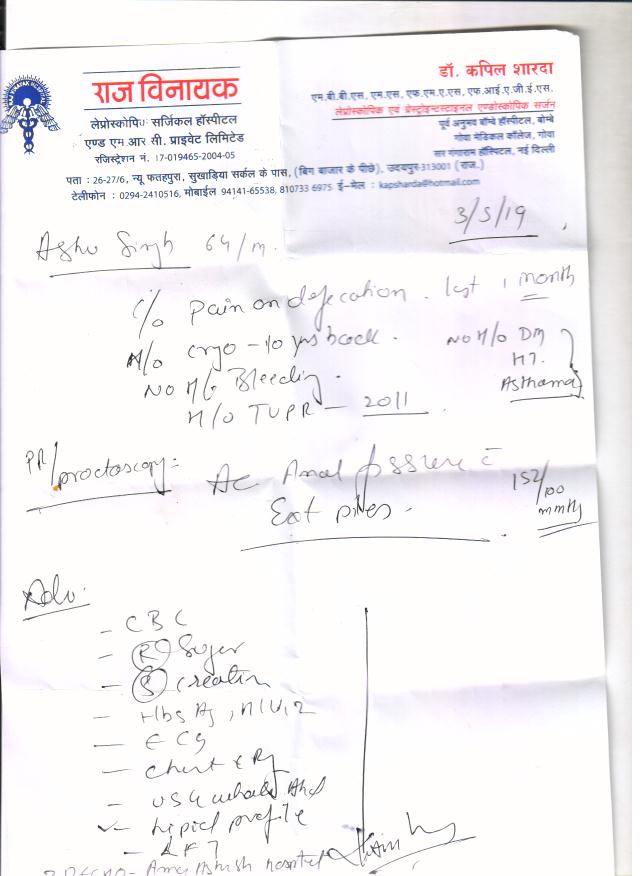 राज विनायक
लेप्रोस्कोपिक सर्जिकल हॉस्पीटल
एण्ड एम.आर सी. प्राइवेट लिमिटेड
रजिस्ट्रेशन नं. 17-019465-2004-05
डॉ. कपिल शारदा
एम.बी.बी.एस, एम.एस, एफ.एम.ए.एस, एफ.आई.ए.जी.ई.एस.
लेप्रोस्कोपिक एवं गेस्ट्रोइन्टस्टाइनल एण्डोस्कोपिक सर्जन
पूर्व अनुभव बॉम्बे हॉस्पीटल, बोम्बे
गोवा मेडिकल कॉलेज, गोवा
सर गंगाराम हॉस्पिटल, नई दिल्ली
पता : 26-27/6, न्यू फतहपुरा, सुखाड़िया सर्कल के पास, (बिग बाजार के पीछे), उदयपुर-313001 (राज.)
टेलीफोन : 0294-2410516, मोबाईल 94141-65538, 810733 6975 ई-मेल : kapsharda@hotmail.com
3/5/19
Singh 64/m.
c/o Pain on defecation. last 1 month
H/o cryo - 10 yrs back. NO H/O DM
HT.
NO H/o Bleeding. Asthama
H/o TUPR - 2011
PR/proctoscopy:- Ac Anal fissure c̄
Ext piles. 152/100
mmHg
Adv:
- CBC
- (R) Suger
- (S) creatin
- Hbs Ag, HIV1,2
- ECG
- Chest x Ry
- USG whole Abd
- Lipid profile
- LFT
hospital